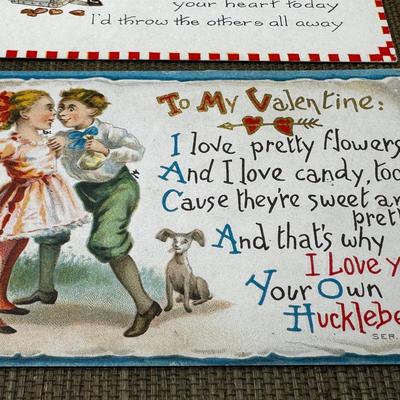 your heart today
I'd throw the others all away
To My Valentine:
I love pretty flowers
And I love candy, too
Cause they're sweet an
prett
And that's why
I Love Y
Your Own
Hucklebe
SER.